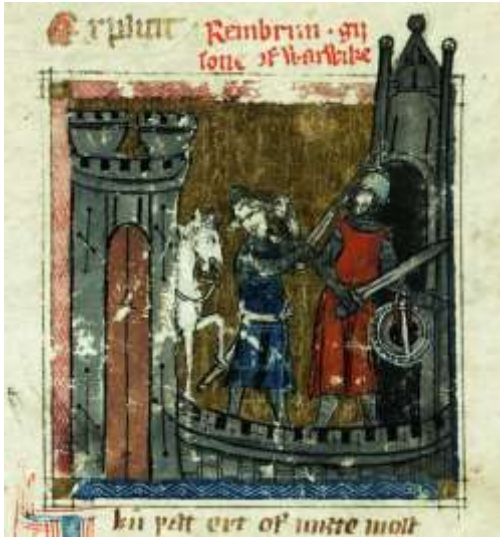 Explicit Reinbrun · gij
sone of warwike
þat ert of miȝte most